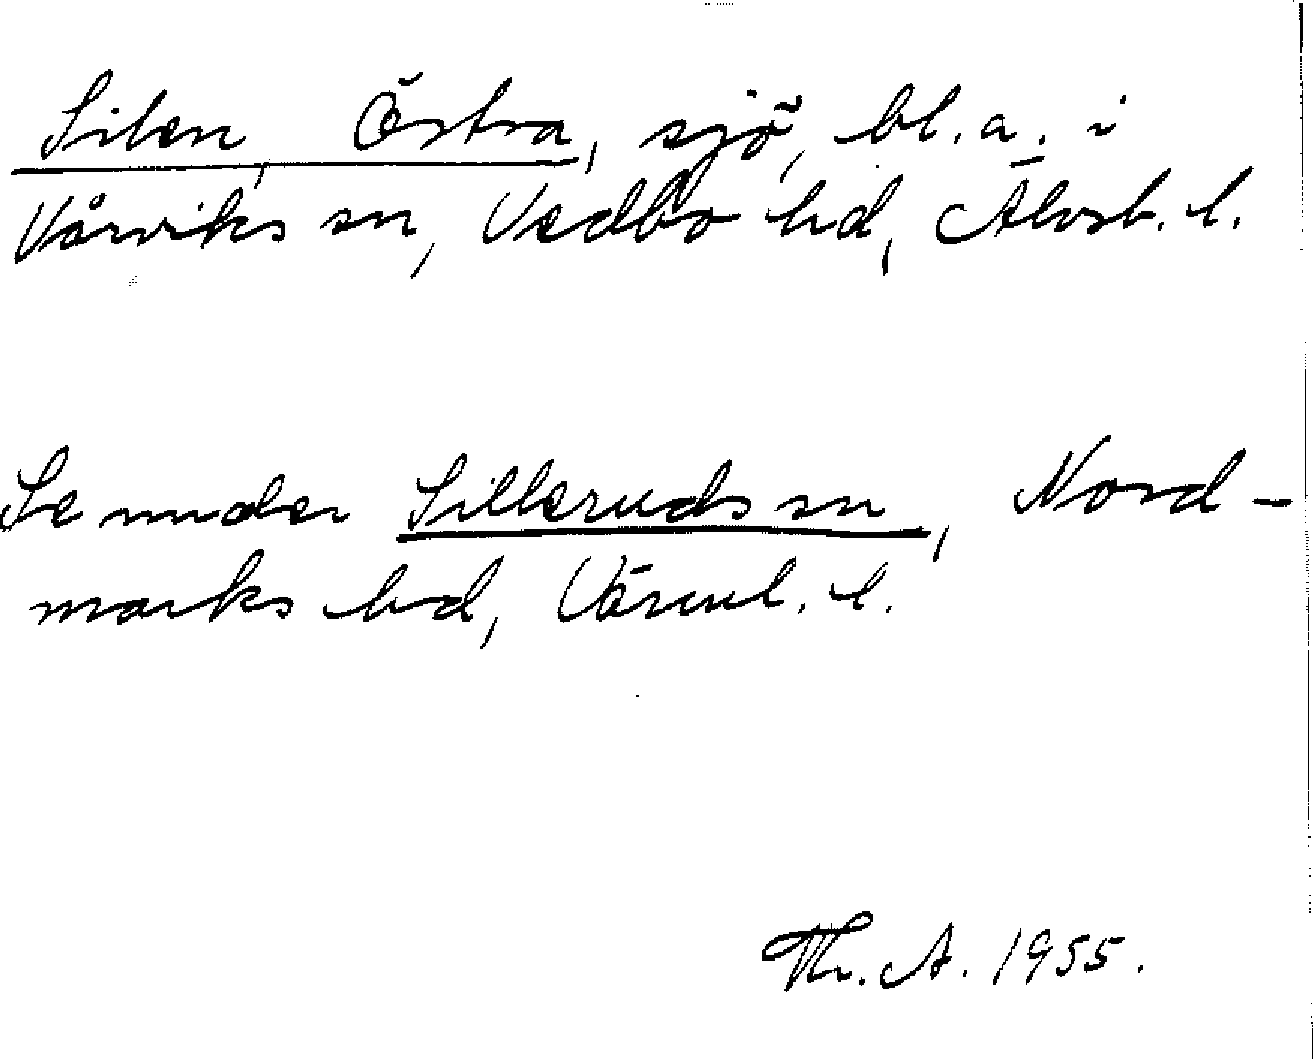 Silen, Östra, sjö, bl. a. i
Vårviks sn, Vedbo hd, Älvsb. l.
Se under Silleruds sn, Nord-
marks hd, Värml. l.
Th. A. 1955.